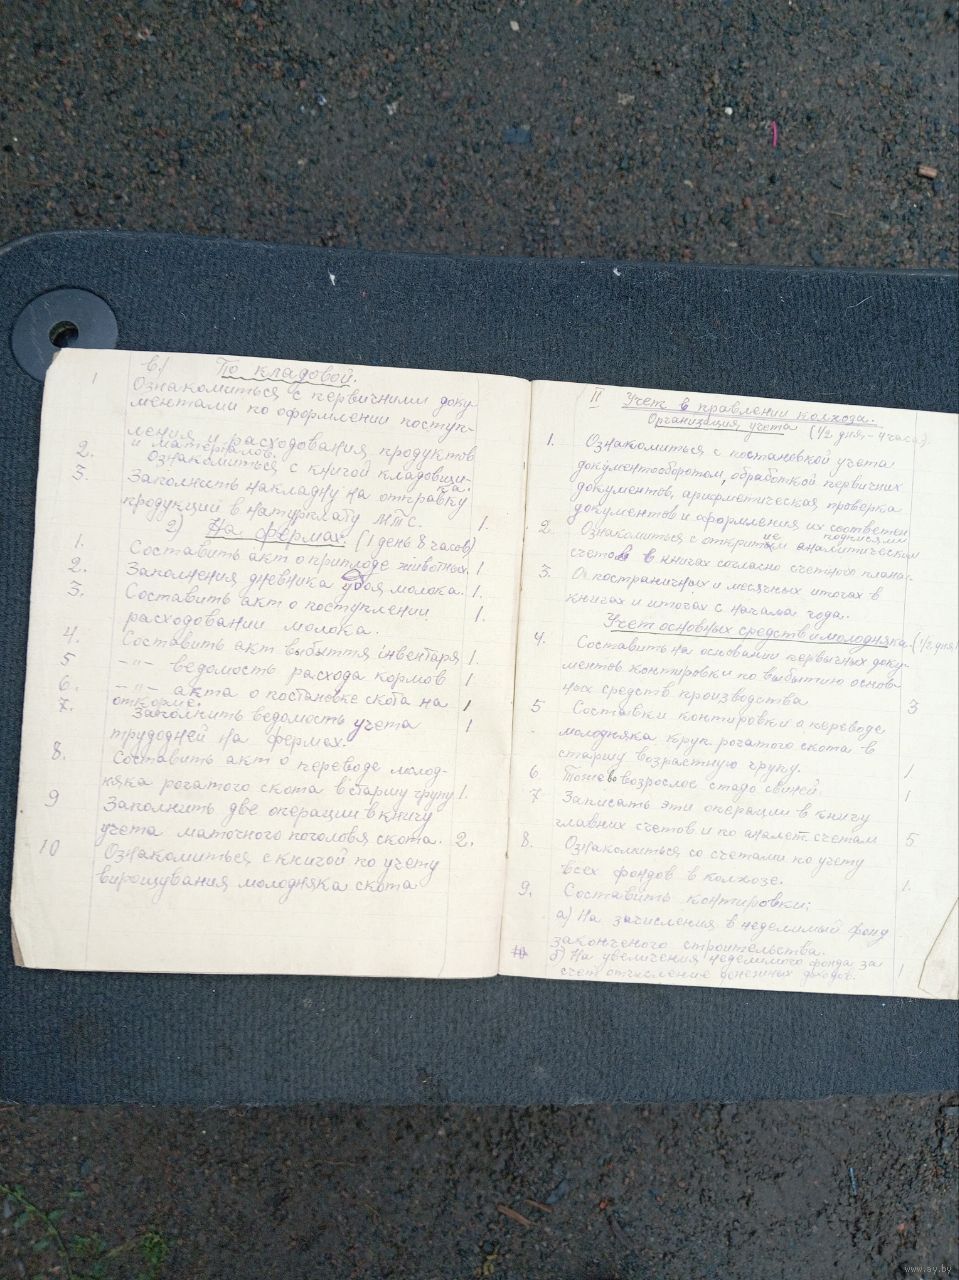 в.) По кладовой.
1 Ознакомиться с первичними доку-
ментами по оформлении поступ-
ления и расходования продуктов
и материалов.
2. Ознакомиться с книгой кладовщи-
ка.
3. Заполнеть накладну на отправку
продукций в натурплату МТС. 1.
2) На фермах. (1 день 8 часов)
1. Составить акт о приплоде животных. 1
2. Заполнения дневника удоя молока. 1.
3. Составить акт о поступлении
расходовании молока. 1.
4. Составить акт выбыття інвентаря 1.
5 –"– ведомость расхода кормов 1
6. –"– акта о постановке скота на 1
откорме.
7. Заполнить ведомость учета 1
трудодней на фермах.
8. Составить акт о переводе молод-
няка рогатого скота в старшу групу 1.
9 Заполнить две операции в книгу
учета маточного поголовя скота. 2.
10 Ознакомиться с книгой по учету
вирощування молодняка скота
II Учет в правлении колхоза.
Организация учета (1/2 дня – 4 часа).
1. Ознакомиться с постановкой учета
документооборотом, обработкой первичних
документов, арифметическая проверка
документов и оформления их соответсн
подписями
2. Ознакомиться с открытие аналитическим
счетов в книгах согласно счетного плана.
3. О постраничных и месячных итогах в
книгах и итогах с начала года.
Учет основных средств и молодняка. (1/2 дня)
4. Составить на основании первычных доку-
ментов контировки по выбытию основ-
ных средств производства 3
5 Составки контировки о переводе
молодняка круп. рогатого скота в
старшу возрастную групу. 1
6 Тоже во возрослое стадо свиней. 1
7 Записать эти операции в книгу
главних счетов и по аналет. счетам 5
8. Ознакомиться со счетами по учету
всех фондов в колхозе. 1.
9. Составить контировки:
а) На зачисления в неделимый фонд
законченого строительства.
10 б) На увеличения неделимого фонда за 1
счет отчисление денежных доходо.
www.ay.by